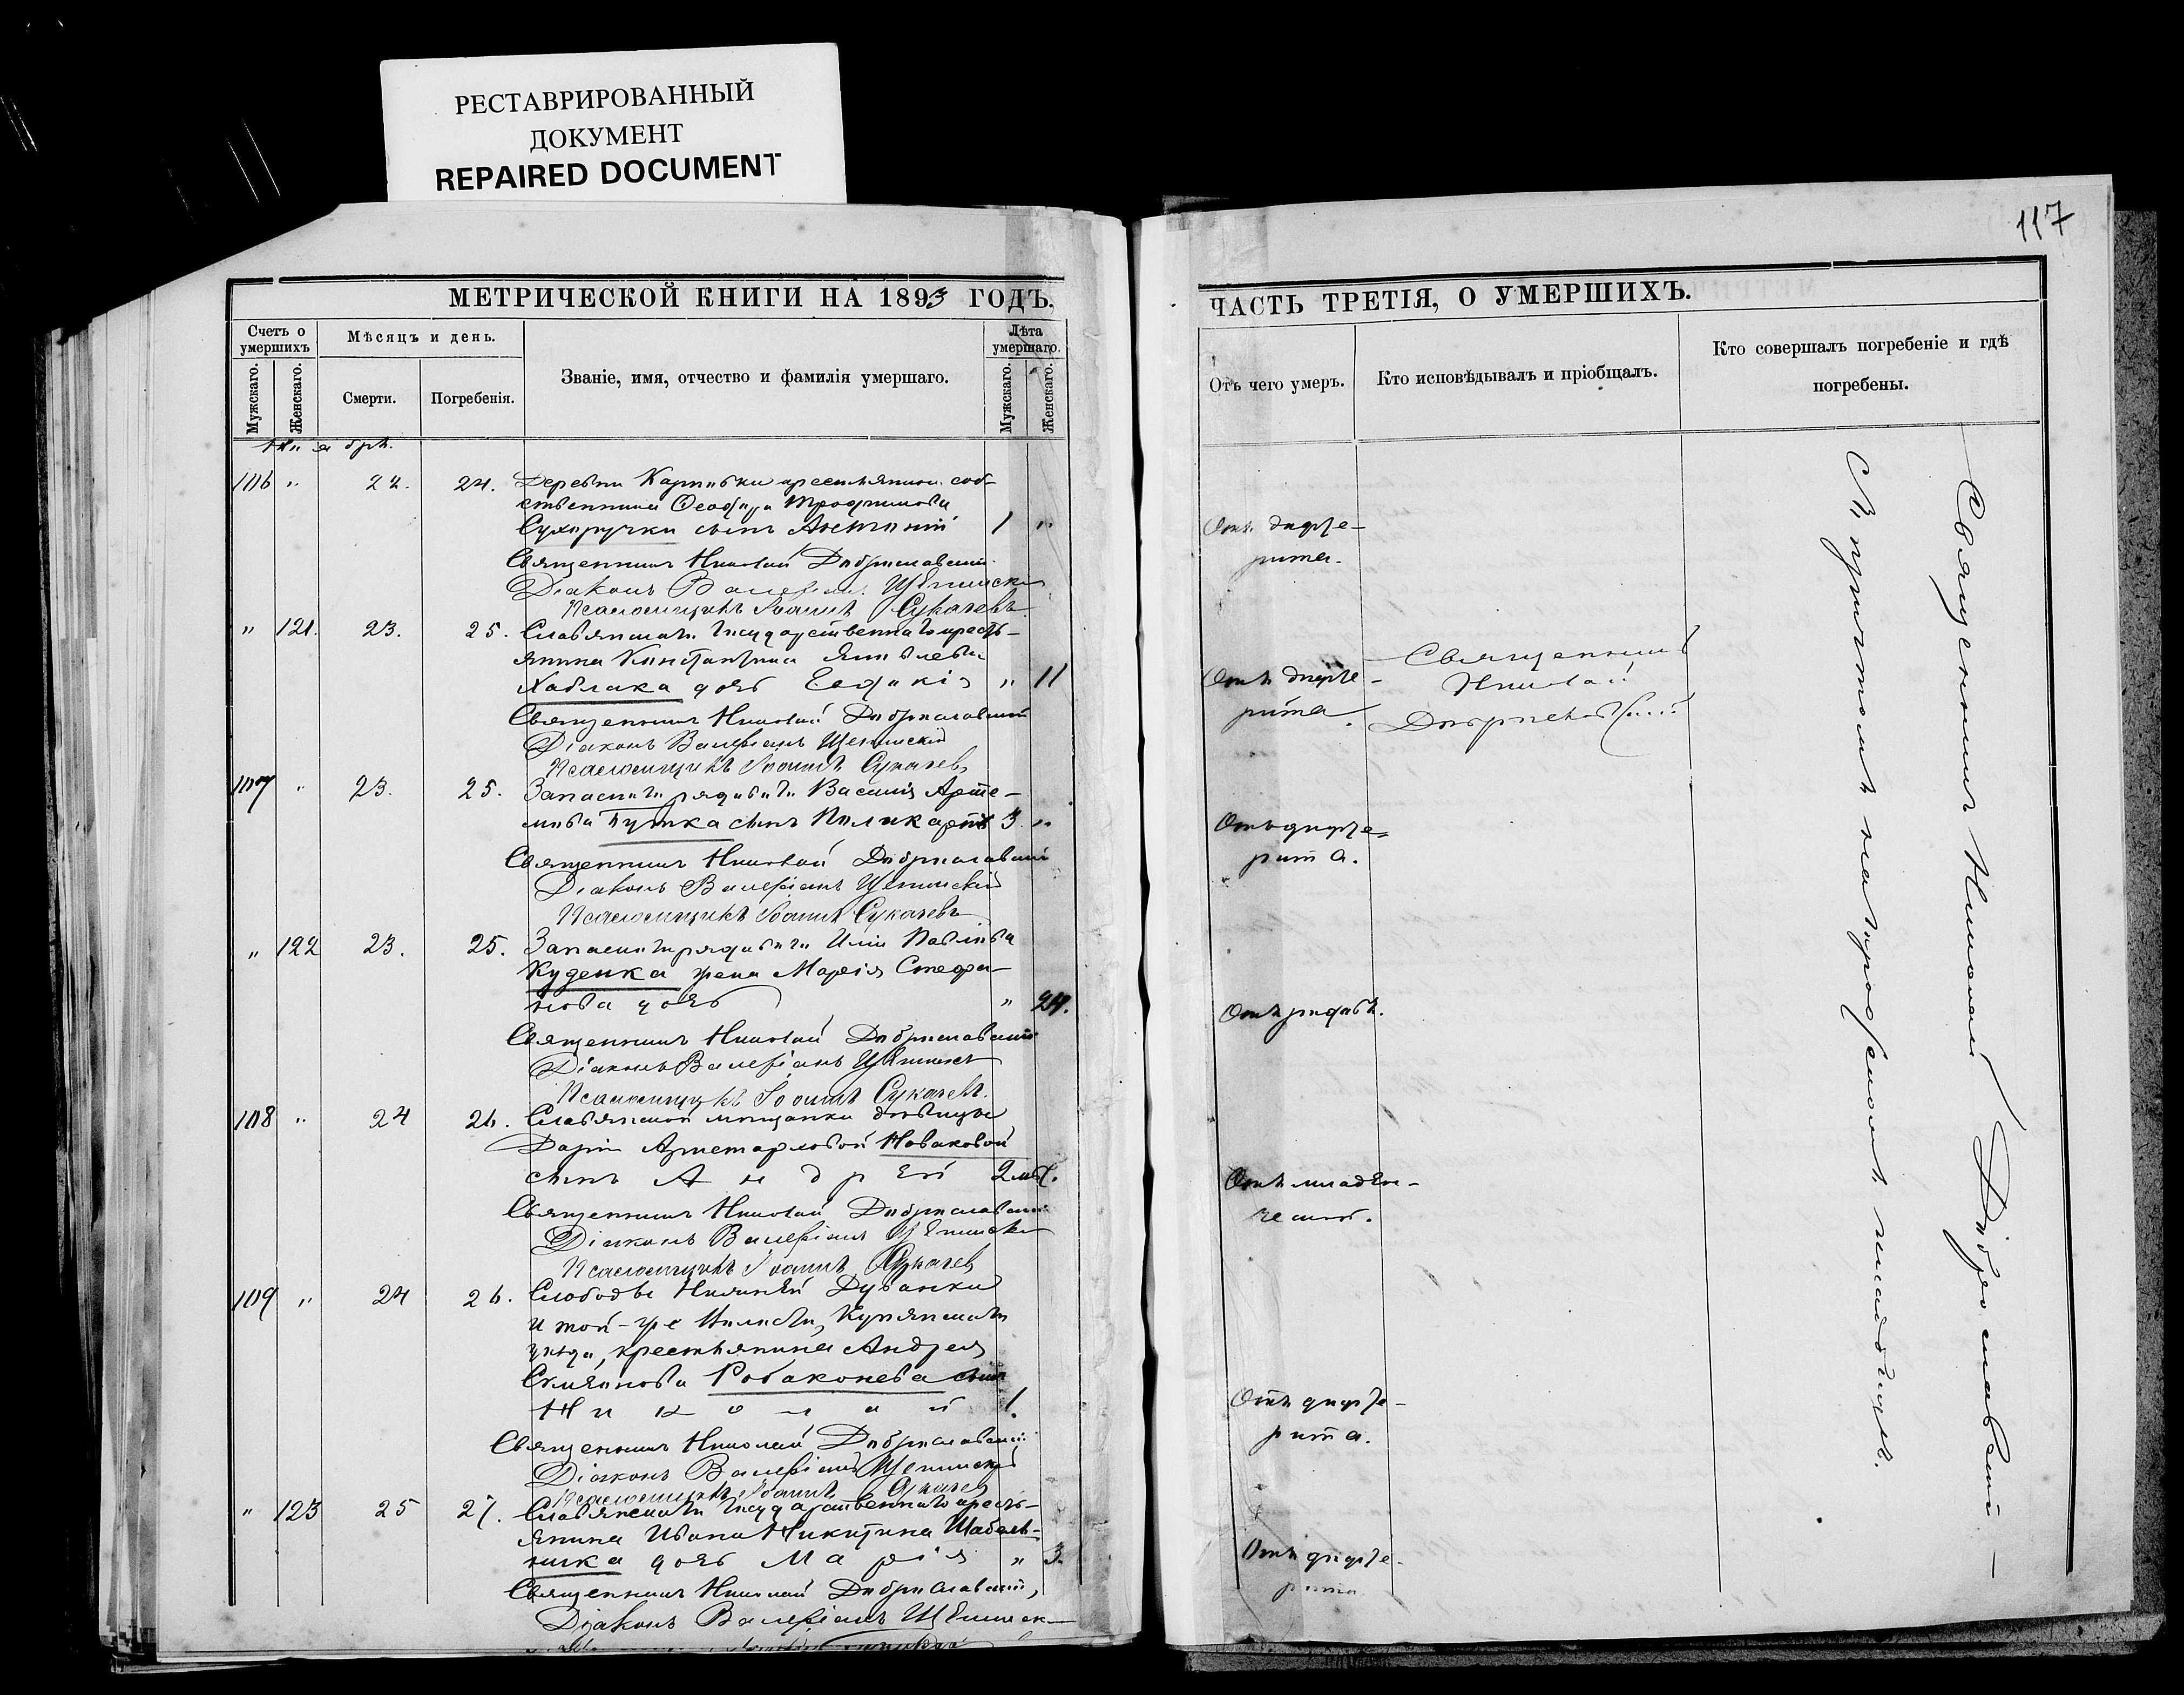 РЕСТАВРИРОВАННЫЙ
ДОКУМЕНТ
REPAIRED DOCUMENT
МЕТРИЧЕСКОЙ КНИГИ НА 1893 ГОДЪ.
Счетъ о умершихъ
Мѣсяцъ и день.
Званіе, имя, отчество и фамилія умершаго.
Лѣта умершаго.
Мужскаго.
Женскаго.
Смерти.
Погребенія.
Мужскаго.
Женскаго.
106 " 22. 24. Деревни Карповки крестьянина соб-
ственника Ѳеодора Трофимова
Сухоручки сынъ Антоній 1 "
Священникъ Николай Доброславскій
Діаконъ Валеріанъ Щепинскій
Псаломщикъ Іоаннъ Сукачевъ
" 121. 23. 25. Славянскаго государственнаго кресть-
янина Константина Яковлева
Хаблака дочь Евдокія " 11
Священникъ Николай Доброславскій
Діаконъ Валеріанъ Щепинскій
Псаломщикъ Іоаннъ Сукачевъ
107 " 23. 25. Запаснаго рядоваго Василія Арте-
мова Путка сынъ Поликарпъ 3. "
Священникъ Николай Доброславскій
Діаконъ Валеріанъ Щепинскій
Псаломщикъ Іоаннъ Сукачевъ
" 122 23. 25. Запаснаго рядоваго Иліи Павлова
Куденка жена Марія Стефа-
нова дочь " 24.
Священникъ Николай Доброславскій
Діаконъ Валеріанъ Щепинскій
Псаломщикъ Іоаннъ Сукачевъ.
108 " 24 26. Славянской мѣщанки дѣвицы
Даріи Новаковой
сынъ Андрей 2 мѣс.
Священникъ Николай Доброславскій
Діаконъ Валеріанъ Щепинскій
Псаломщикъ Іоаннъ Сукачевъ
109 " 24 26. Слободы Нижней Дуванки
и той-же волости, Купянскаго
уѣзда, крестьянина Андрея
Робаконева сынъ
Николай 1.
Священникъ Николай Доброславскій
Діаконъ Валеріанъ Щепинскій
Псаломщикъ Іоаннъ Сукачевъ
" 123 25 27. Славянскаго государственнаго кресть-
янина Ивана Никитина Шабель-
ника дочь Марія " 3.
Священникъ Николай Доброславскій,
Діаконъ Валеріанъ Щепинскій
117
ЧАСТЬ ТРЕТІЯ, О УМЕРШИХЪ.
Отъ чего умеръ.
Кто исповѣдывалъ и пріобщалъ.
Кто совершалъ погребеніе и гдѣ
погребены.
Отъ дифте-
рита.
Отъ дифте-
рита.
Священникъ
Николай
Доброславскій
Отъ дифте-
рита.
Отъ родовъ.
Отъ младен-
ческой.
Отъ дифте-
рита.
Отъ дифте-
рита
Священникъ Николай Доброславскій
Съ причтомъ на кладбищѣ.